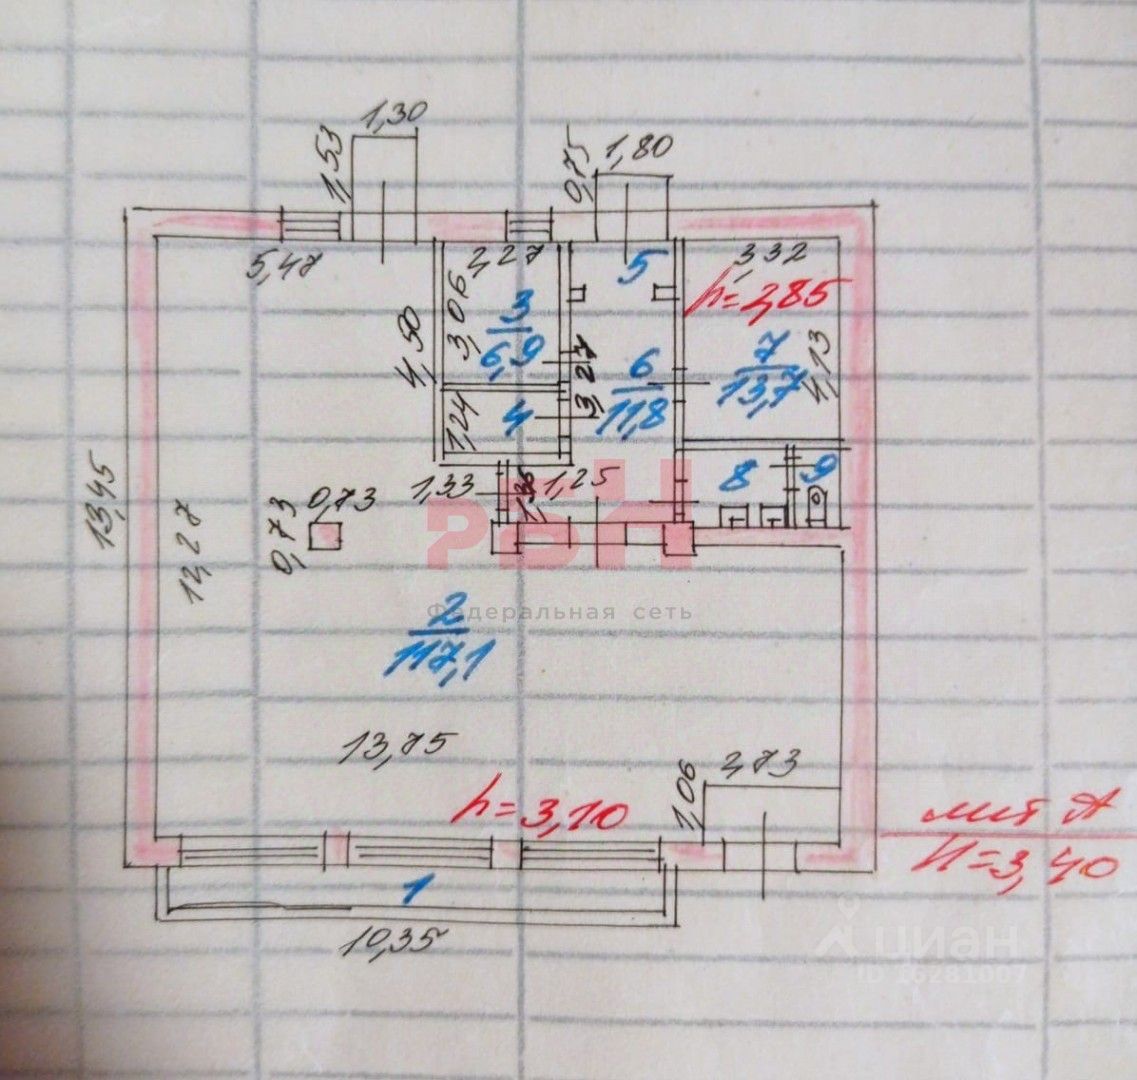 1,30
1,53
0,75
1,80
5,47
2,27
5
3,32
h=2,85
3,06
3
6,9
4,50
3,27
6
11,8
7
13,7
4,13
1,24
4
13,45
1,33
1,36
1,25
8
9
0,73
0,73
12,27
РБН
Федеральная сеть
2
117,1
13,75
1,06
2,73
h=3,10
лит А
H=3,40
1
10,35
циан
ID 16281007